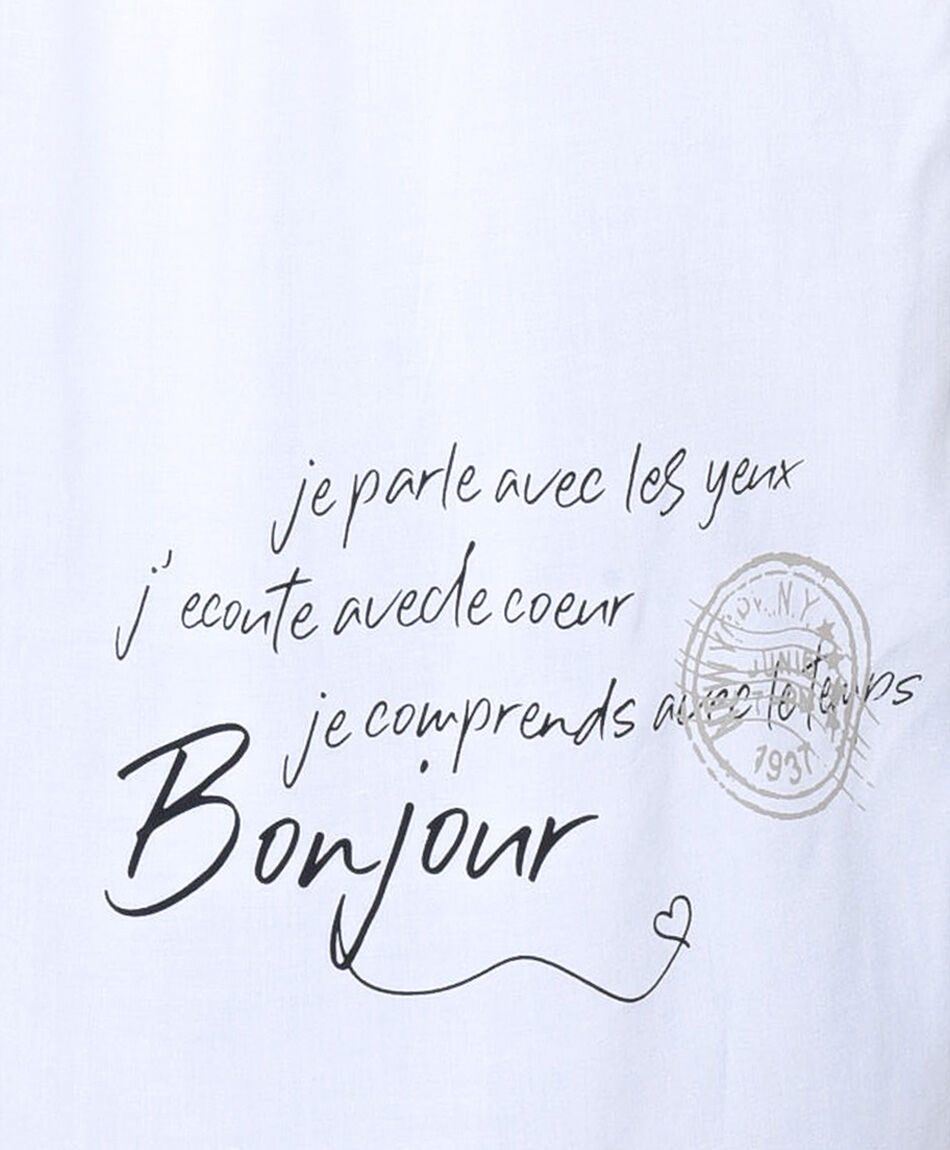 je parle avec les yeux
j'ecoute avec le coeur
je comprends avec le temps
Bonjour
N.Y
JUNIE
1937